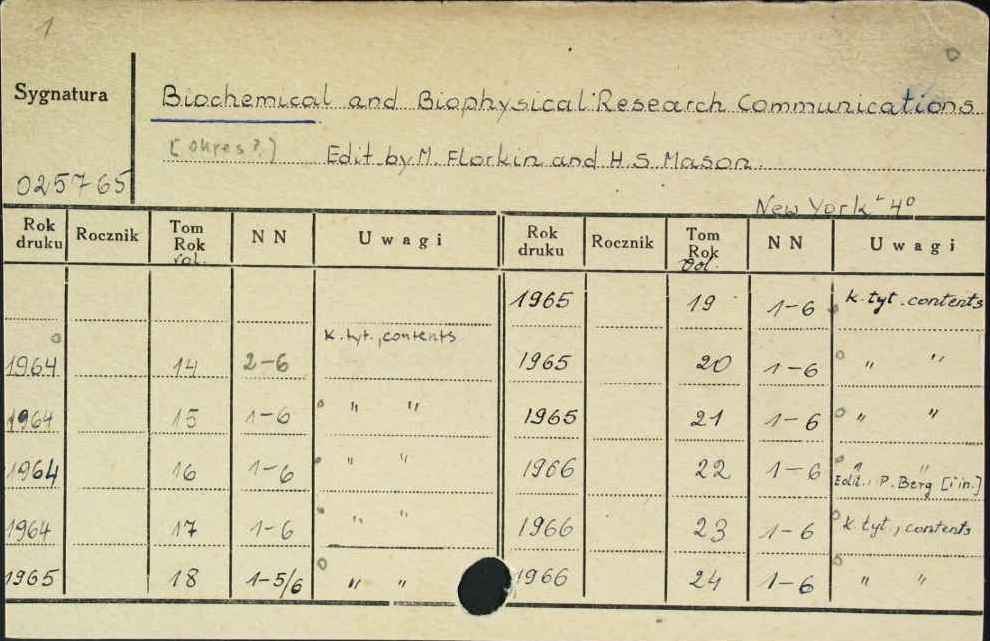 1
Sygnatura
Biochemical and Biophysical Research Communications
[okres?] Edit by M. Florkin and H. S. Mason.
025765
New York 4°
Rok druku Rocznik Tom Rok vol. NN Uwagi Rok druku Rocznik Tom Rok Vol. NN Uwagi
1965 19 1-6 k. tyt. contents
1964 14 2-6 k. tyt., contents 1965 20 1-6 " "
1964 15 1-6 " " 1965 21 1-6 " "
1964 16 1-6 " " 1966 22 1-6 " " Edit. P. Berg [i in.]
1964 17 1-6 " " 1966 23 1-6 k. tyt, contents
1965 18 1-5/6 " " 1966 24 1-6 " "